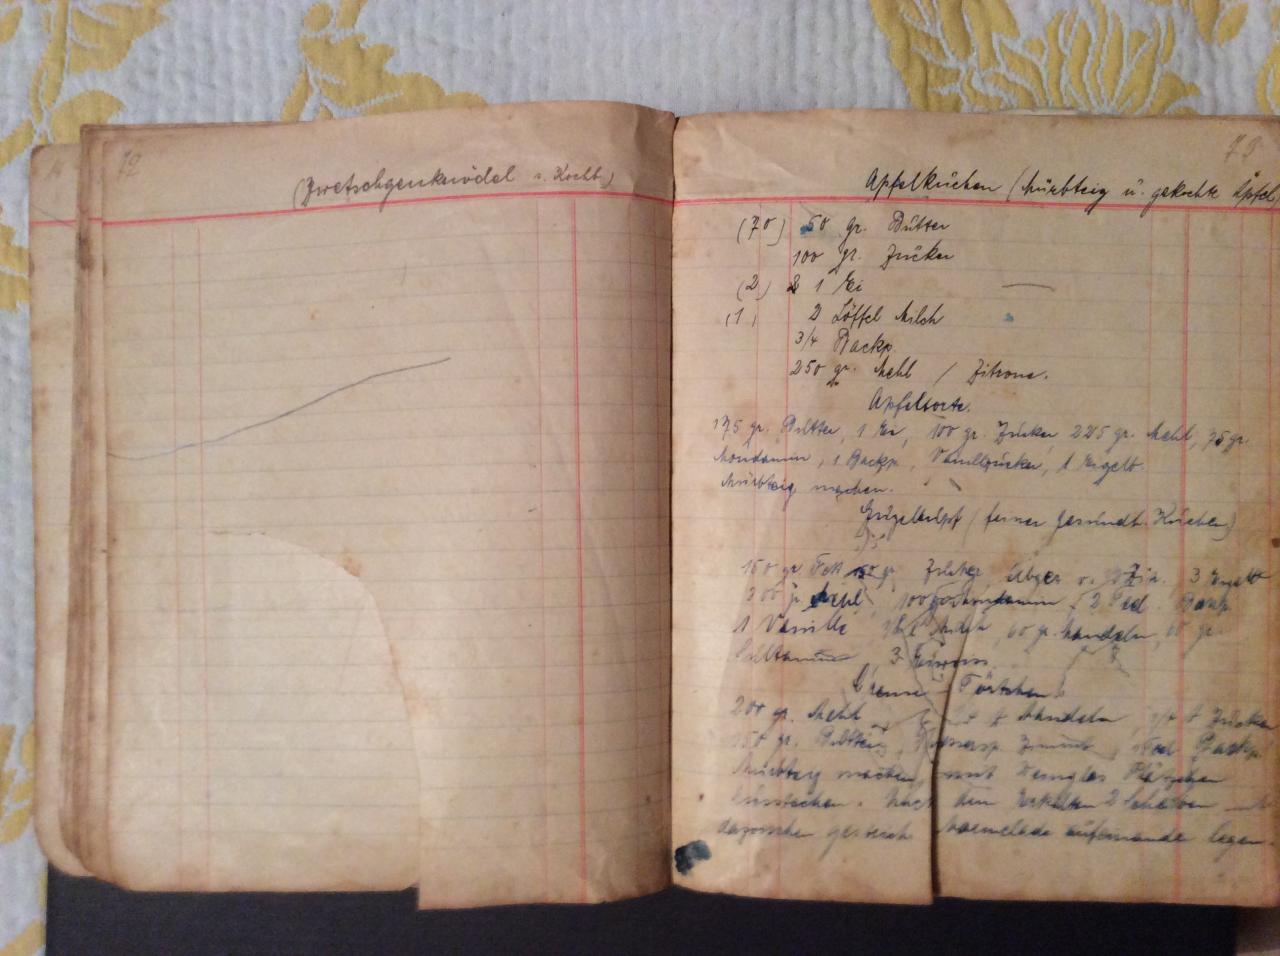 72
(Zwetschgenknödel s. Kochb.)
78
Apfelkuchen (Mürbteig u. gekochte Äpfel
(70) 50 gr. Butter
100 gr. Zucker
(2) 1 Ei
(1) 2 Löffel Milch
3/4 Backp.
250 gr. Mehl / Zitrone.
Apfeltorte.
175 gr. Butter, 1 Ei, 100 gr. Zucker, 225 gr. Mehl, 75 gr.
Mondamin, 1 Backp., Vanillzucker, 1 Eigelb.
Mürbteig machen.
Gugelhupf (feiner Gesundh. Kuchen)
150 gr. Fett 150 gr. Zucker, Abger. v. Zitr. 3 Eigelb
200 gr. Mehl, 100 Mondamin, 2 Backp.
1 Vanille Milch, 60 gr. Mandeln, 60 gr.
Sultaninen, 3 Eiweiss.
Creme Törtchen.
200 gr. Mehl Mandeln, 1/4 Zucker
150 gr. Butter, Messersp. Zimmt, Backp.
Mürbteig machen, mit Weinglas Plätzchen
ausstechen. Nach dem Erkalten 2 Scheiben mit
dazwischen Marmelade aufeinander legen.